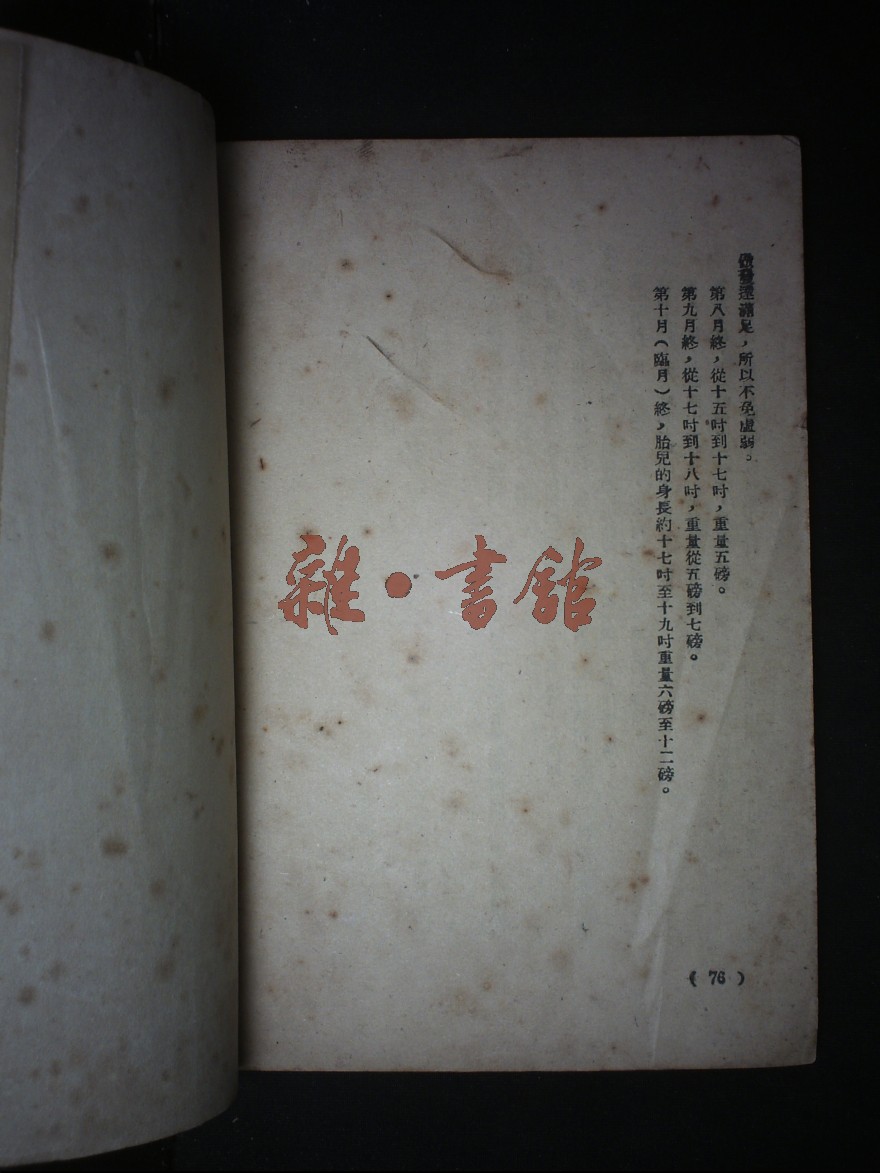 達滿足，所以不免虛弱。
第八月終，從十五吋到十七吋，重量五磅。
第九月終，從十七吋到十八吋，重量從五磅到七磅。
第十月（臨月）終，胎兒的身長約十七吋至十九吋重量六磅至十二磅。
雜·書館
( 76 )